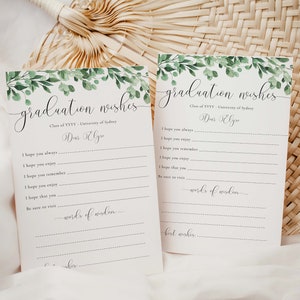 graduation wishes
Class of YYYY - University of Sydney
Dear
I hope you always
I hope you enjoy
I hope you remember
I hope you enjoy
I hope that you
Be sure to visit
words of wisdom
best wishes
graduation wishes
Class of YYYY - University of Sydney
Dear
I hope you always
I hope you enjoy
I hope you remember
I hope you enjoy
I hope that you
Be sure to visit
words of wisdom
best wishes